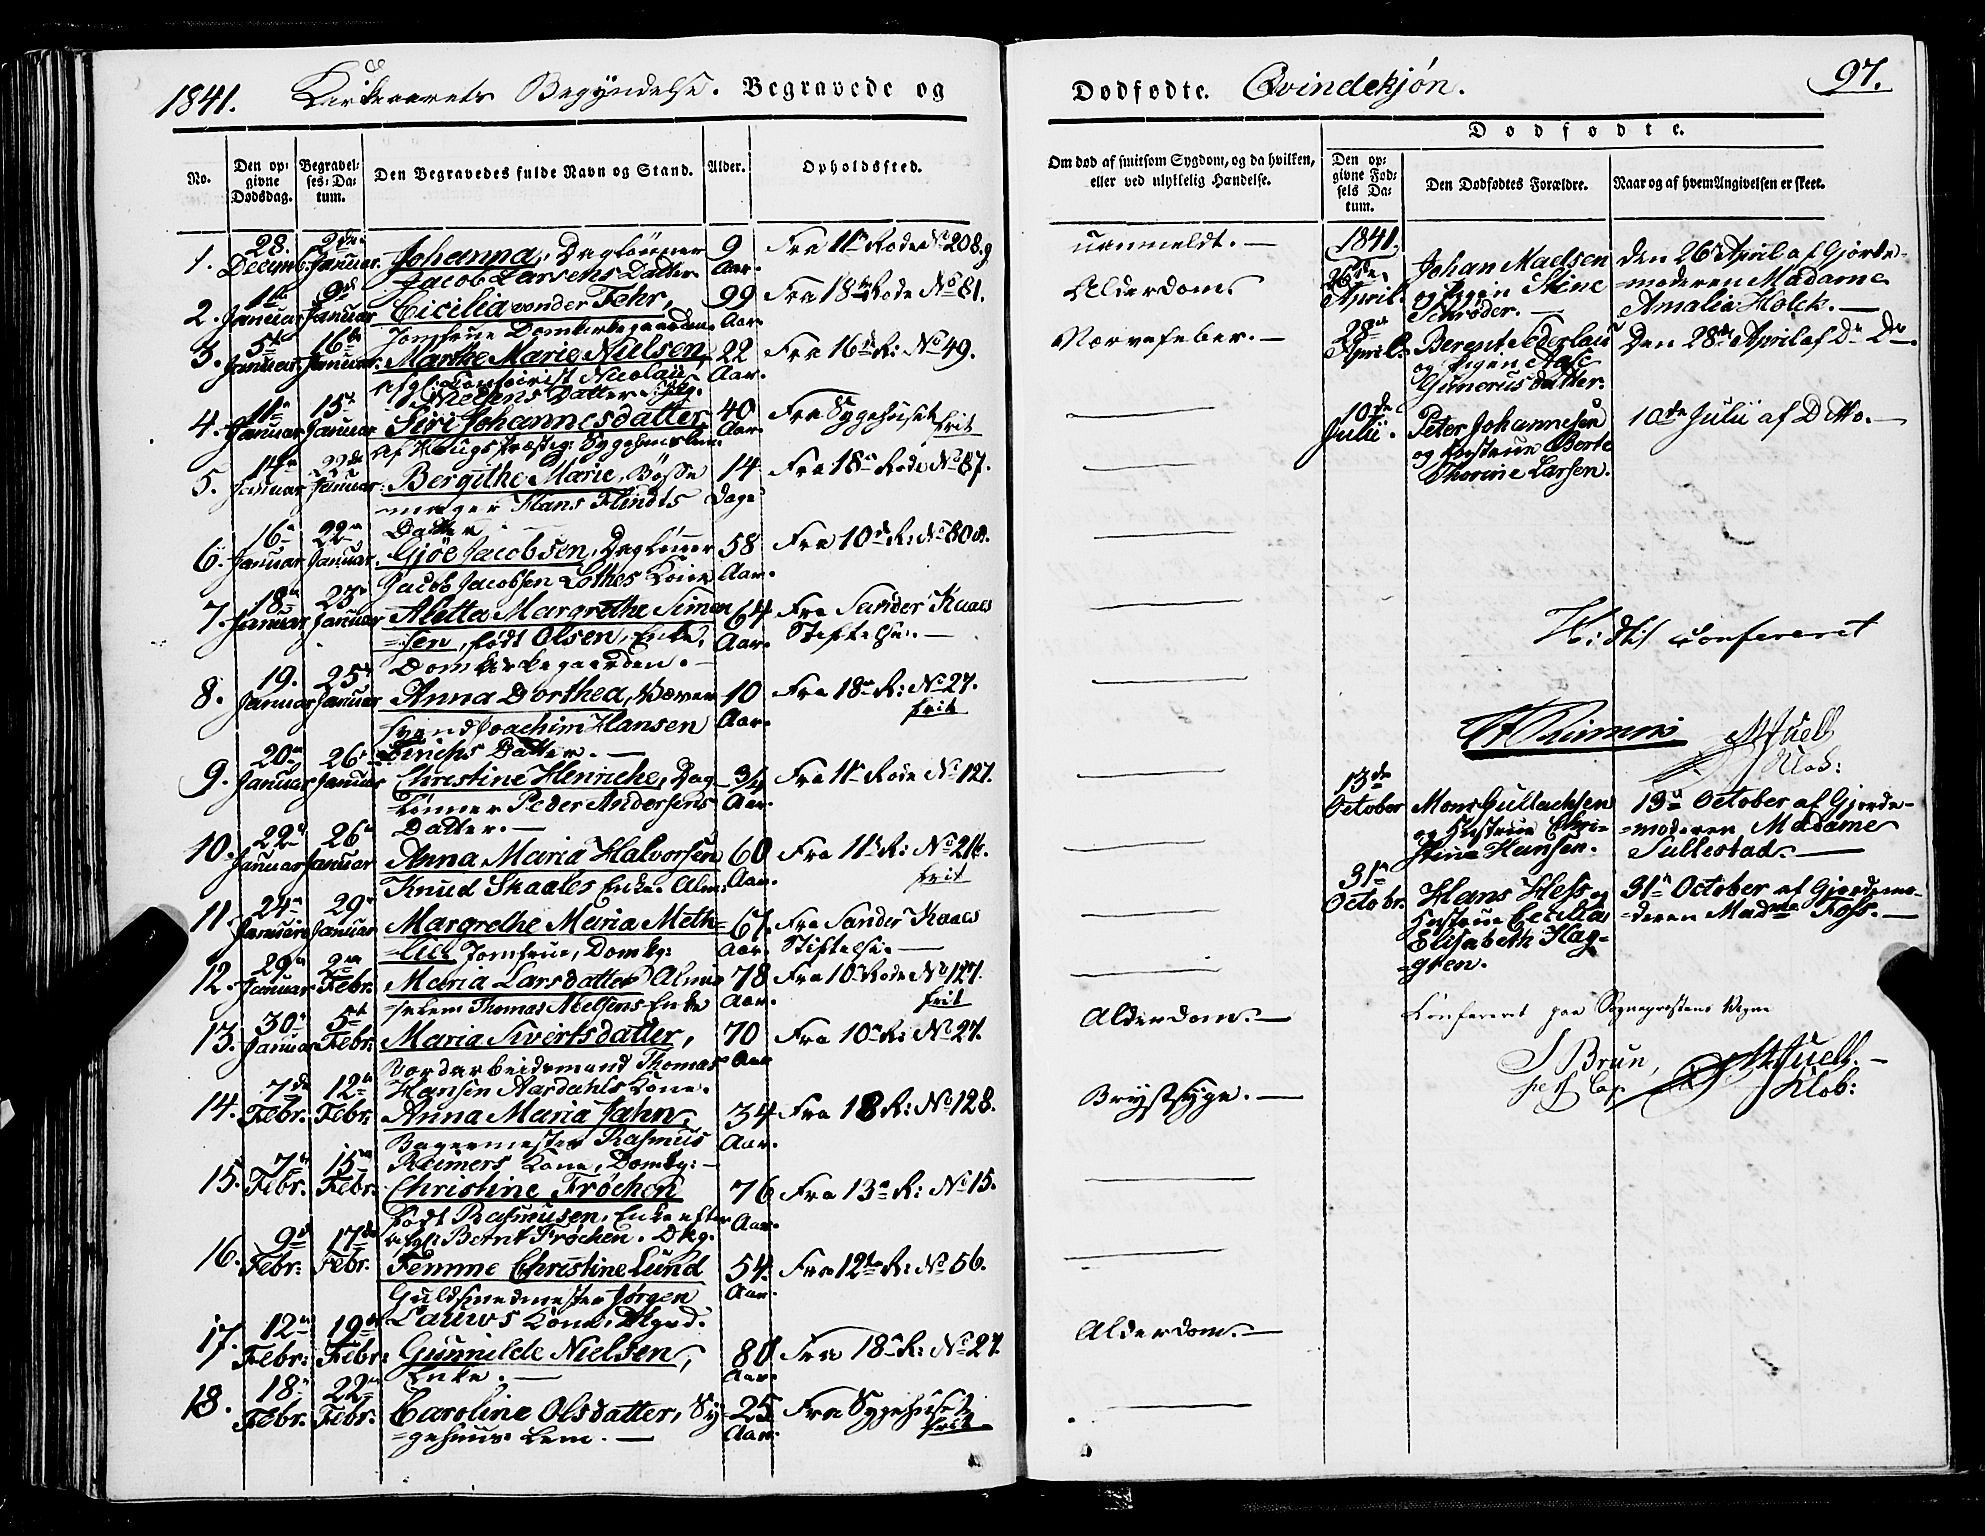 1841. Kirkeaarets Begyndelse. Begravede og
No.
Den opgivne Dødsdag.
Begravelses-Datum.
Den Begravedes fulde Navn og Stand.
Alder.
Opholdssted.
1. 28. Decemb: 2den Januar. Johanna, Dagløner 9 Aar. Fra 11te Rode No 208.
Jacob Larsens Datter
2. Januar 9de Januar Cicilia vonder Fehr, 99 Aar. Fra 18de Rode No 81.
Jomfrue Domkirkegaarden.
3. 5te Januar 16de Januar. Marthe Marie Nielsen, 22 Aar. Fra 16de R: No 49.
Nicolai
Nielsens Datter.
4. 11te Januar 15de Januar Siri Johannesdatter 40 Aar. Fra Sygehuset frit
af Haugs Præstegj: Sygehuuslem.
5. Januar 22de Januar. Bergithe Marie, Bøsse 14 Dage Fra 18de Rode No 87.
mager Hans Flindts
Datter
6. 16de Januar 22de Januar. Gjøe Jacobsen, Dagløner 58 Aar. Fra 10de R: No 80a.
Jacob Jacobsen Lothes Kone
7. 18de Januar 23de Januar Aletta Margrethe Simon 64 Aar. Fra Sander Kaaes
=sen, født Olsen, Enke, Stiftelse.—
Domkirkegaarden.—
8. 19. Januar 25de Januar Anna Dorthea, Væver 10 Aar. Fra 18de R: No 27.
svend Joachim Hansen frit
Datter.—
9. 20de Januar 26de Januar Christine Henriche, Dag- 3/4 Aar. Fra 11te Rode No 127.
=lønner Peder Andersens
Datter.—
10. 22de Januar 26de Januar Anna Maria Halvorsen 60 Aar. Fra 11te R: No 216.
Knud Skaales Enke. Alm: frit
11. 24de Januar 29de Januar Margrethe Maria Meth= 67. Aar. Fra Sander Kaaes
=lie Jomfrue, Domkg: Stiftelse.—
12. 29de Januar. 2den Febr: Maria Larsdatter Almis 78 Aar. Fra 10de Rode No 127.
=selem Thomas Nielsens Enke frit
13. 30te Januar 5te Febr: Maria Sivertsdatter, 70 Aar Fra 10de R: No 27.
Jordarbeidsmand Thomas
Hansen Aardahls Kone.
14. 7de Febr: 12te Febr: Anna Maria Jahn, 34 Aar. Fra 18 R: No 128.
Bagermester Rasmus
Reimers Kone, Domkg:—
15. 7de Febr. 15de Febr. Christine Frøchen 76 Aar. Fra 13de R: No 15.
født Rasmusen, Enke efter
afg: Bernt Frøchen. Dkg.
16. 9de Febr: 17de Febr. Femme Christine Lund 54. Aar. Fra 12te R: No 56.
Guldsmedmester Jørgen
Lauws Kone, Dkgrd.
17. 12te Febr: 19de Febr: Gunnilde Nielsen, 80 Aar. Fra 18de R: No 27.
Enke.—
18. 18de Febr. 22de Febr: Caroline Olsdatter, Sy- 25 Aar. Fra Sygehuset
=gehuus Lem.— frit
Dødfødte. Qvindekjøn. 97.
Om død af smitsom Sygdom, og da hvilken, eller ved ulykkelig Hændelse.
Dødfødte.
Den opgivne Fødsels Datum.
Den Dødfødtes Forældre.
Naar og af hvem Angivelsen er skeet.
uanmeldt.—
Alderdom
Nervefeber.—
Alderdom.—
Brystsyge.—
Alderdom.—
1841.
26de April. Johan Madsen den 26de April af Gjorde-
og Pigen Stine =moderen Madame
Schrøder.— Amalia Holck.—
28de April. Berent Sederlau Den 28de April af Do Do.
og Pigen
Gunerusdatter.
10de Julii. Peter Johannesen 10de Julii af Ditto.—
og Hustrue Berte
Thorine Larsen.
Hidtil confereret
13de October Mons Gullachsen 13de October af Gjorde-
og Hustrue Chri- =moderen Madame
stine Hansen. Sullestad.—
31te Octobr. Hans Hess og 31te October af Gjordemo-
Hustrue Cecilia =deren Madme Foss.—
Elisabeth Hag-
=gren.
Confereret paa Sognepræstens Vegne
J Brun,
Klok: